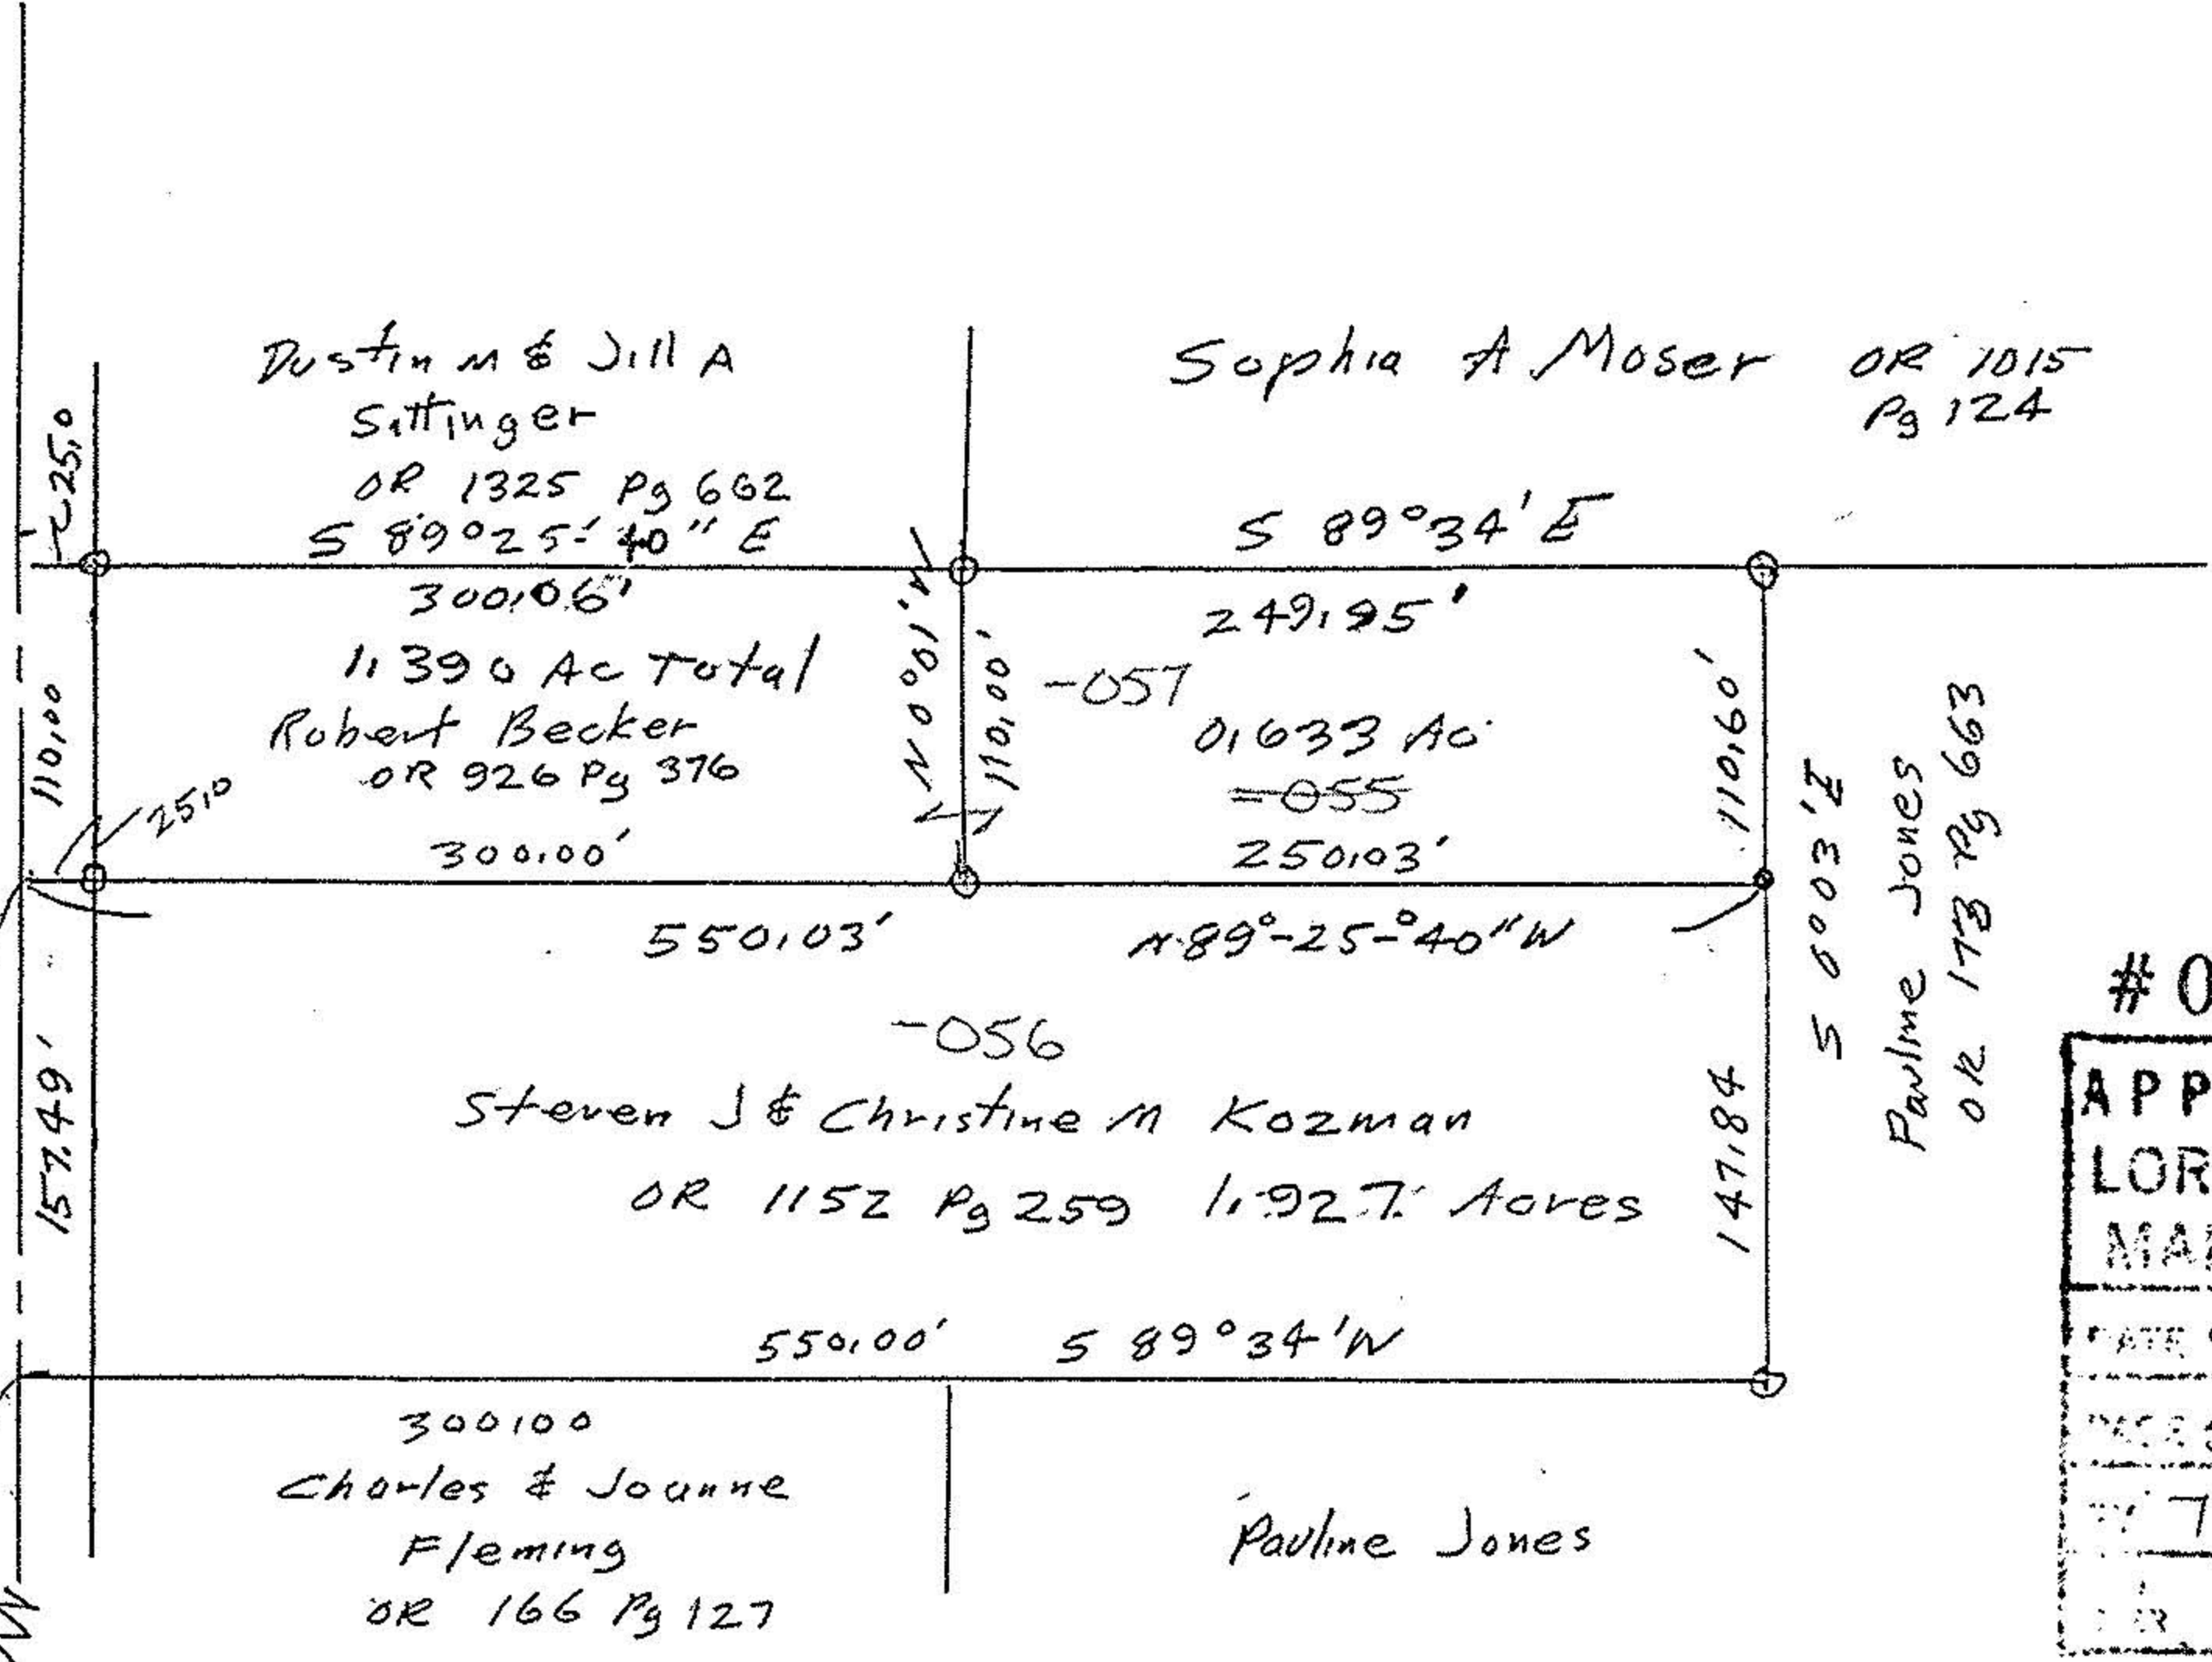 Dustin M & Jill A
Sittinger
OR 1325 Pg 662
S 89°25'40" E
300.06'
Sophia A Moser OR 1015
Pg 124
S 89°34' E
249.95'
25.0
110.00
1.390 Ac Total
Robert Becker
OR 926 Pg 376
25.0
300.00'
N 0°01' W
110.00'
-057
0.633 Ac
-055
250.03'
110.60'
S 0°03' E
Pauline Jones
OR 173 Pg 663
550.03' N 89°-25-°40" W
-056
157.49'
Steven J & Christine M Kozman
OR 1152 Pg 259 1.927 Acres
147.84
550.00' S 89°34' W
300.00
Charles & Joanne
Fleming
OR 166 Pg 127
Pauline Jones
#0
APP
LOR
MA
DATE
7
W